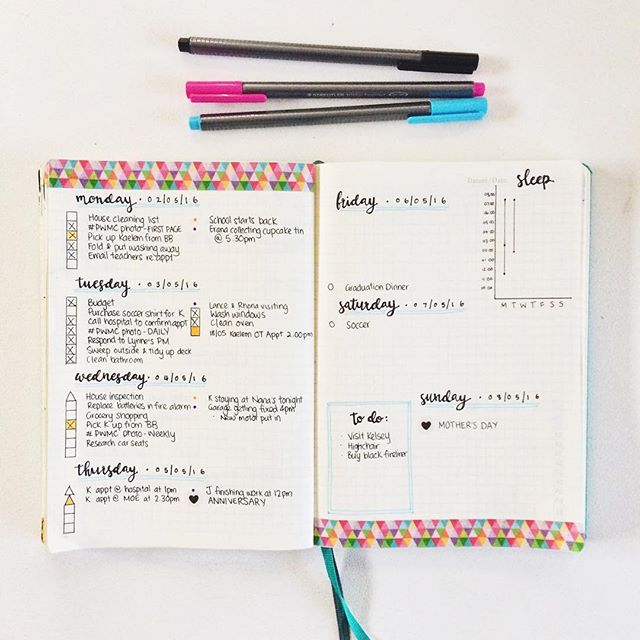 monday · 02/05/16
House cleaning list
#DWMC photo - FIRST PAGE
Pick up Kaelem from BB
Fold & put washing away
Email teachers re: appt
School starts back
Erana collecting cupcake tin
@ 5.30pm
tuesday · 03/05/16
Budget
Purchase soccer shirt for K
Call hospital to confirm appt
#DWMC photo - DAILY
Respond to Lynne's PM
Sweep outside & tidy up deck
Clean bathroom
Lance & Rhena visiting
Wash windows
Clean oven
18/05 Kaelem OT Appt 2.00pm
wednesday · 04/05/16
House inspection
Replace batteries in fire alarm
Grocery shopping
Pick K up from BB
#DWMC photo - Weekly
Research car seats
K staying at Nana's tonight
Garage getting fixed 4pm
- New motor put in
thursday · 05/05/16
K appt @ hospital at 1pm
K appt @ MOE at 2.30pm
J finishing work at 12pm
ANNIVERSARY
friday · 06/05/16
Graduation Dinner
saturday · 07/05/16
Soccer
Datum/Date:
sleep
M T W T F S S
to do:
· Visit Kelsey
· Highchair
· Buy black fineliner
sunday · 08/05/16
MOTHER'S DAY